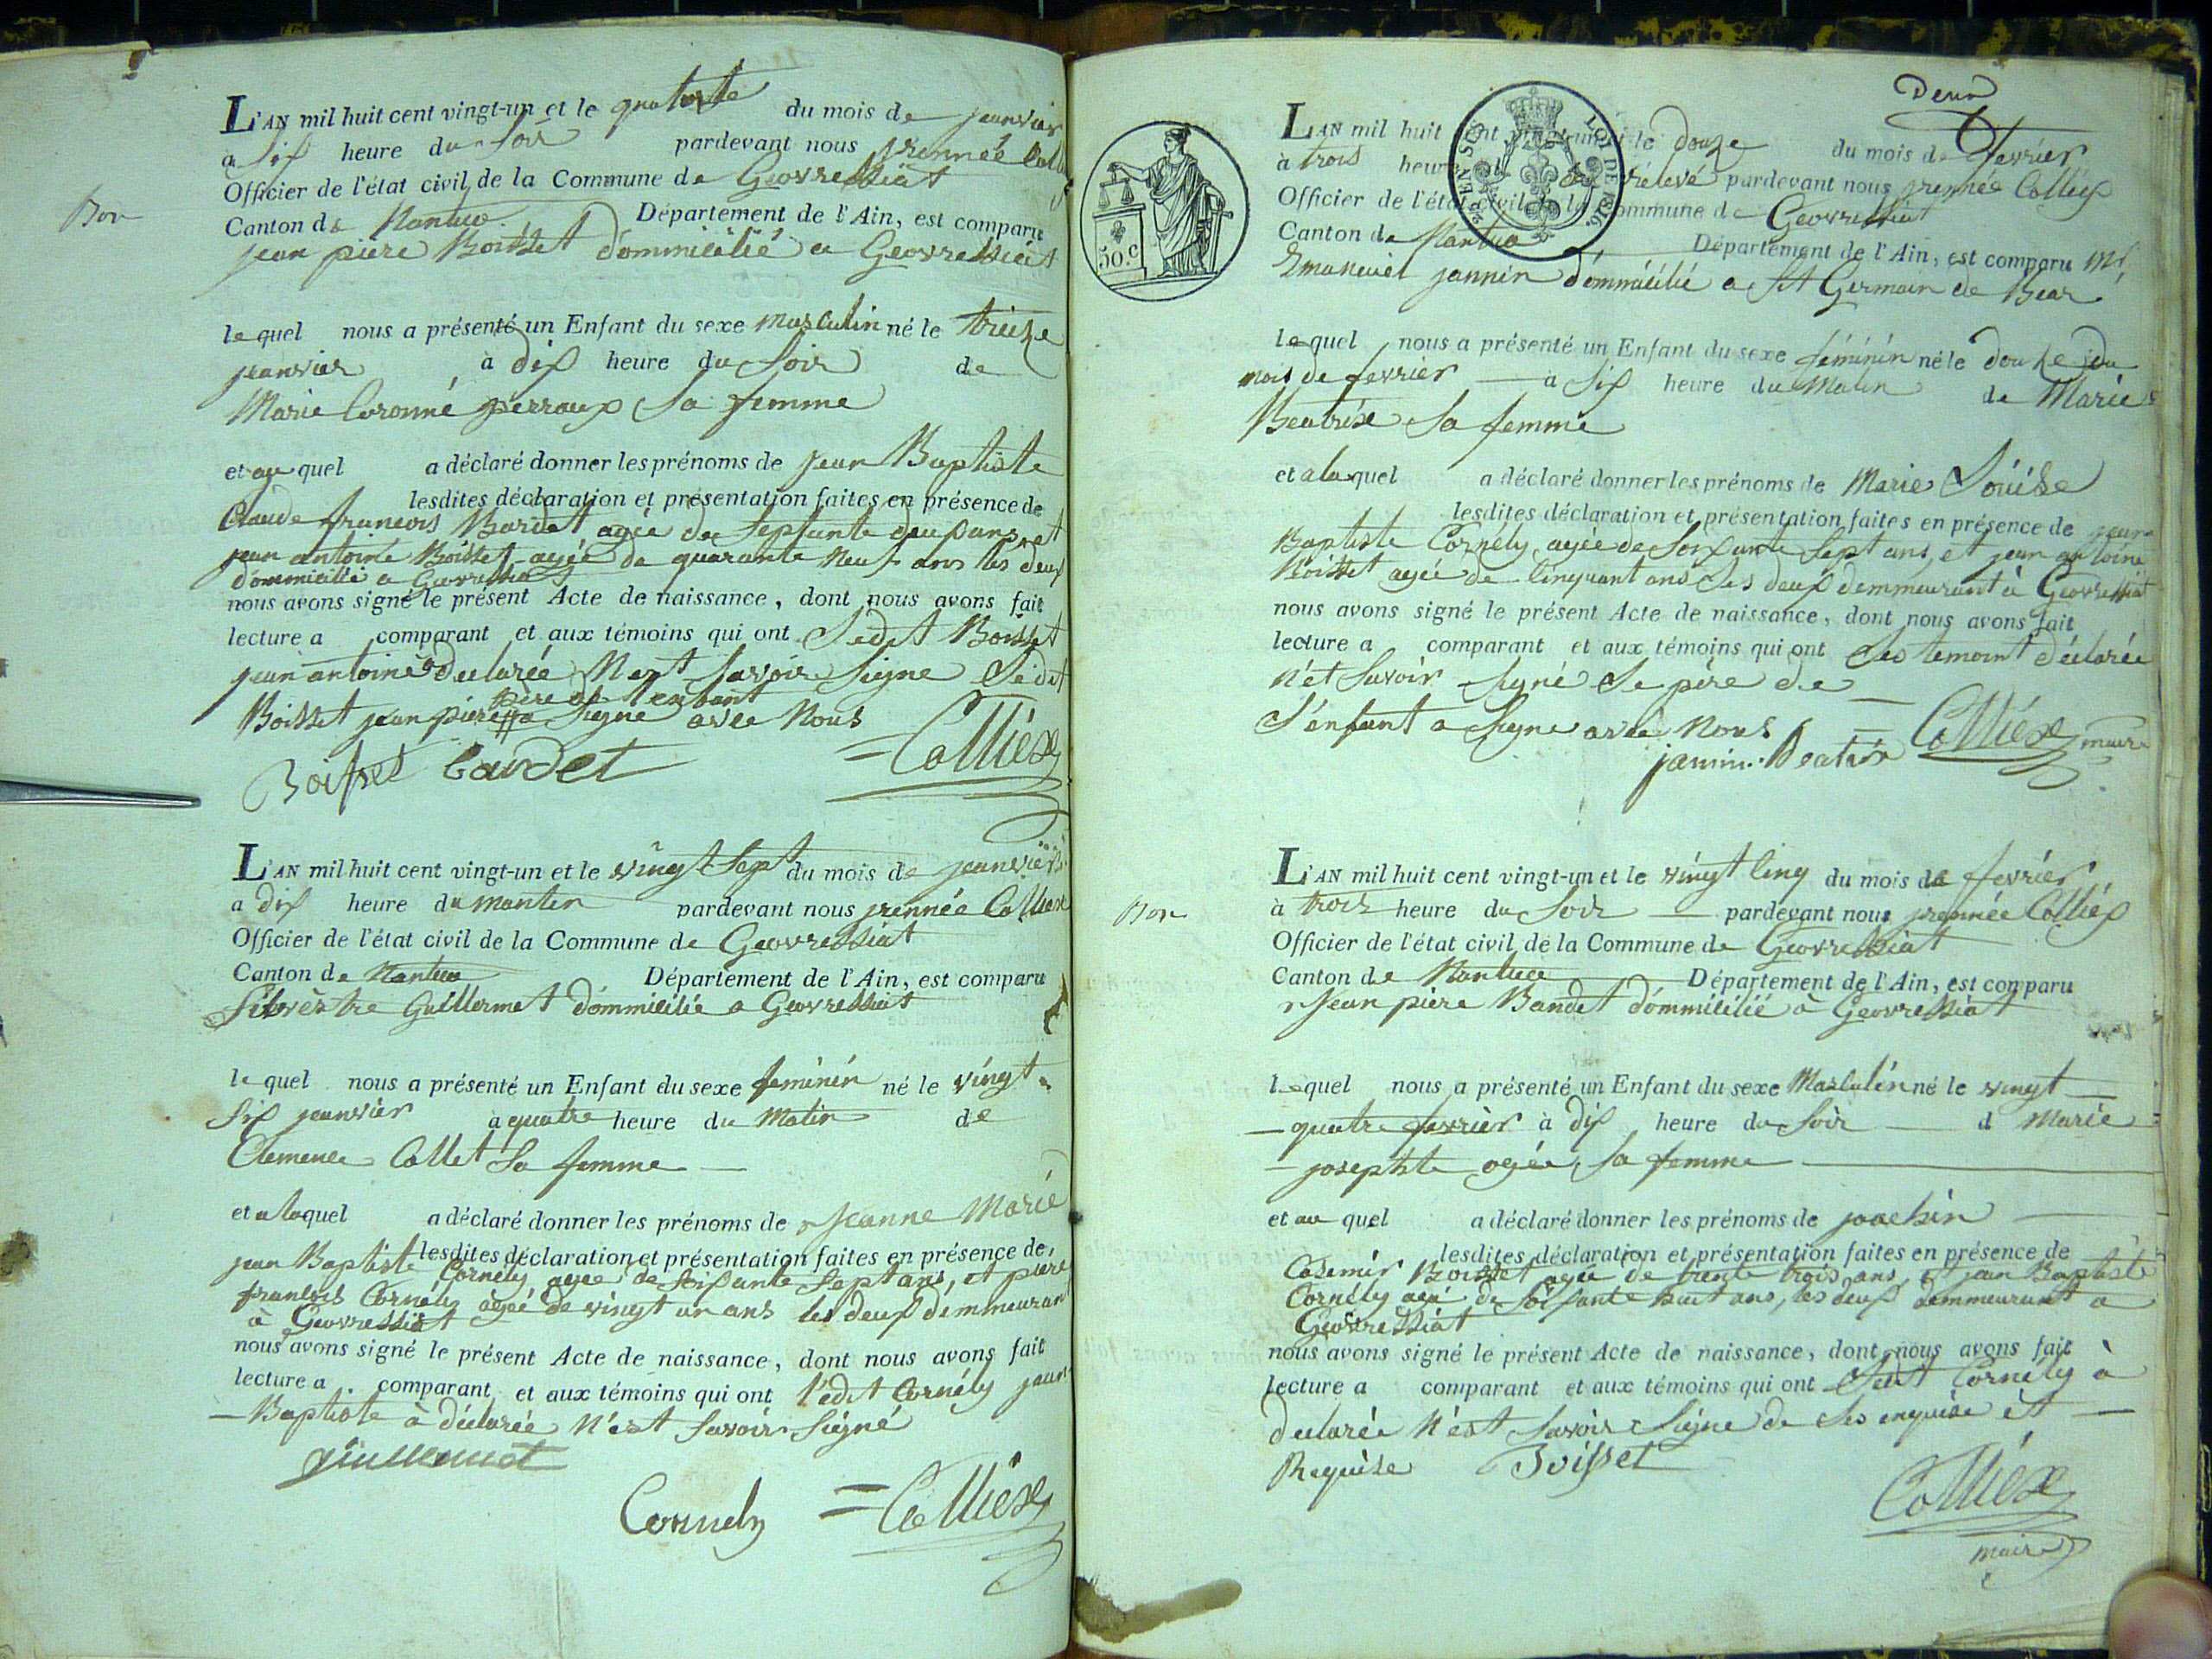 Bon
L'AN mil huit cent vingt-un et le quatorze du mois de jeanvier
a six heure du Soir pardevant nous
Officier de l'état civil de la Commune de Geovressiat
Canton de Nantua Département de l'Ain, est comparu
jean piere Boisset dommicilié a Geovressiat
le quel nous a présenté un Enfant du sexe masculin né le treize
jeanvier à dix heure du Soir de
Marie perraux Sa femme
et au quel a déclaré donner les prénoms de jean Baptiste
lesdites déclaration et présentation faites en présence de
Claude francois Bardet agée de Septante deux ans et
jean antoine Boisset agée de quarante neuf ans les deux
dommicilié a Geovressiat
nous avons signé le présent Acte de naissance, dont nous avons fait
lecture a comparant et aux témoins qui ont Ledit Boisset
jean antoine declarée Savoir Signe Ledit
père de l'enfant
Boisset jean piere a Signe avec Nous
Boisset Bardet = Colliex
L'AN mil huit cent vingt-un et le vingt Sept du mois de jeanvier
a dix heure du mantin pardevant nous Colliex
Officier de l'état civil de la Commune de Geovressiat
Canton de Nantua Département de l'Ain, est comparu
Silvèstre Guillermet dommicilié a Geovressiat
le quel nous a présenté un Enfant du sexe feminin né le vingt
six jeanvier à quatre heure du Matin de
Clemence Collet Sa femme
et a laquel a déclaré donner les prénoms de Jeanne Marie
lesdites déclaration et présentation faites en présence de
jean Baptiste Cornely agée de soixante Sept ans, et piere
francois Cornély agée de vingt un ans les deux demmeurant
à Geovressiat
nous avons signé le présent Acte de naissance, dont nous avons fait
lecture a comparant et aux témoins qui ont Ledit Cornély jean
Baptiste à déclarée n'est Savoir Signé
Guillermet
Cornely = Colliex
Deux
50.c
EN SUS LOI DE 1816
L'AN mil huit cent vingt-un et le douze du mois de fevrier
à trois heure pardevant nous Colliex
Officier de l'état civil de la Commune de Geovressiat
Canton de Nantua Département de l'Ain, est comparu
Emanuiel jannin dommicilié a St Germain de Bear
le quel nous a présenté un Enfant du sexe féminin né le douze du
mois de fevrier à Six heure du Matin de Marie
Beatrixe Sa femme
et a la quel a déclaré donner les prénoms de Marie Louise
lesdites déclaration et présentation faites en présence de jean
Baptiste Cornely agée de Soixante Sept ans, et jean antoine
Boisset agée de Cinquant ans Les deux demmeurant à Geovressiat
nous avons signé le présent Acte de naissance, dont nous avons fait
lecture a comparant et aux témoins qui ont Les temoint déclarée
n'ét Savoir Signé Le père de
L'enfant a Signe avec Nous
jannin Beatrix Colliex maire
Bon
L'AN mil huit cent vingt-un et le vingt Cinq du mois de fevrièr
à trois heure du Soir pardevant nous Colliex
Officier de l'état civil de la Commune de Geovressiat
Canton de Nantua Département de l'Ain, est comparu
Jean piere Bandet dommicilié à Geovressiat
le quel nous a présenté un Enfant du sexe Masculin né le vingt
quatre fevrièr à dix heure du Soir d Marie
josephte Sa femme
et au quel a déclaré donner les prénoms de joachin
lesdites déclaration et présentation faites en présence de
Casimir Boisset agée de trente trois ans, et jean Baptiste
Cornély agé de Soixante huit ans, les deux demmeurant a
Geovressiat
nous avons signé le présent Acte de naissance, dont nous avons fait
lecture a comparant et aux témoins qui ont Ledit Cornély à
declarée n'est Savoir Signe de Les enquise et
Requise Boisset
Colliex
maire